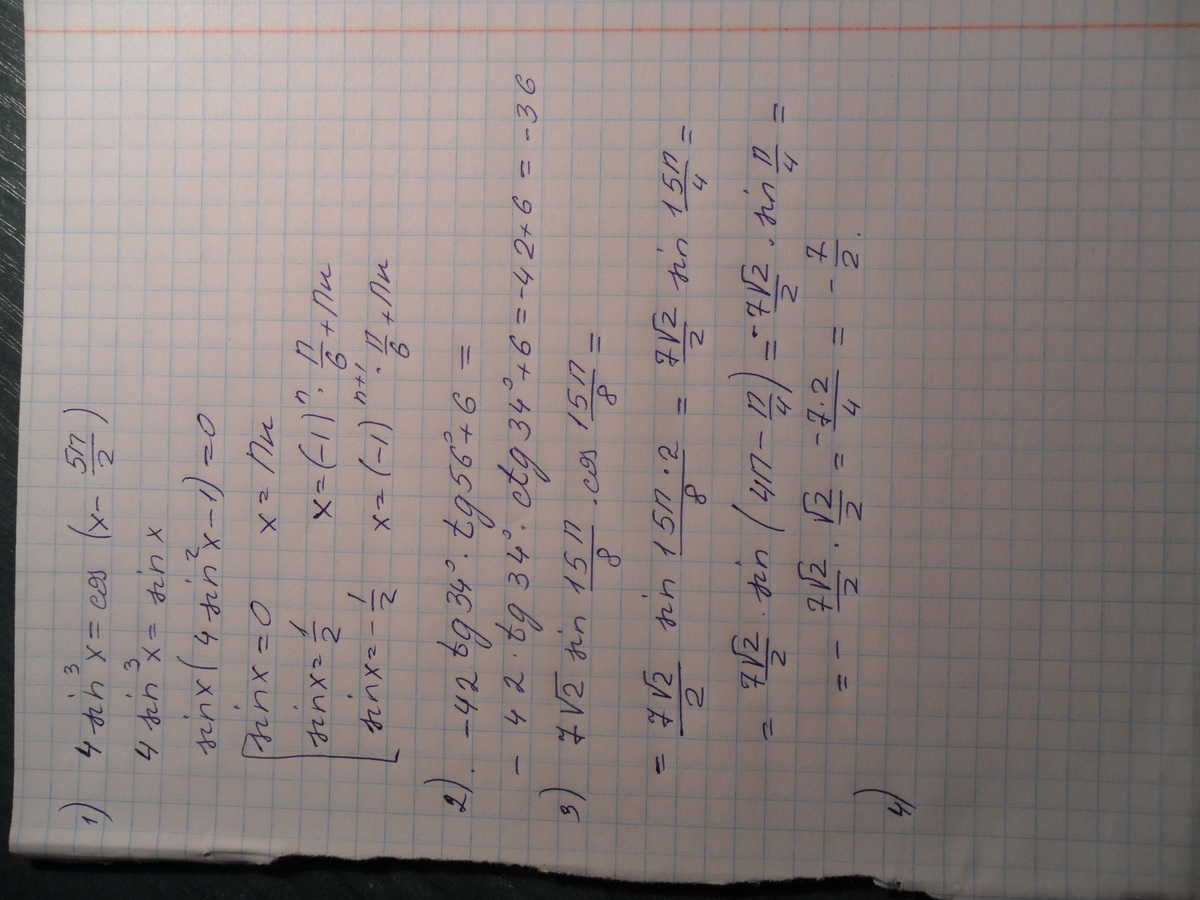 1) 4 sin³x = cos (x − 5π/2)
4 sin³x = sin x
sin x (4 sin²x − 1) = 0
[ sin x = 0 x = πn
sin x = 1/2 x = (−1)ⁿ · π/6 + πn
sin x = − 1/2 x = (−1)ⁿ⁺¹ · π/6 + πn
2). −42 tg 34° · tg 56° + 6 =
− 42 · tg 34° · ctg 34° + 6 = −42 + 6 = −36
3) 7√2 sin 15π/8 · cos 15π/8 =
= 7√2/2 sin 15π·2/8 = 7√2/2 sin 15π/4 =
= 7√2/2 · sin (4π − π/4) = −7√2/2 · sin π/4 =
= − 7√2/2 · √2/2 = −7·2/4 = − 7/2.
4)